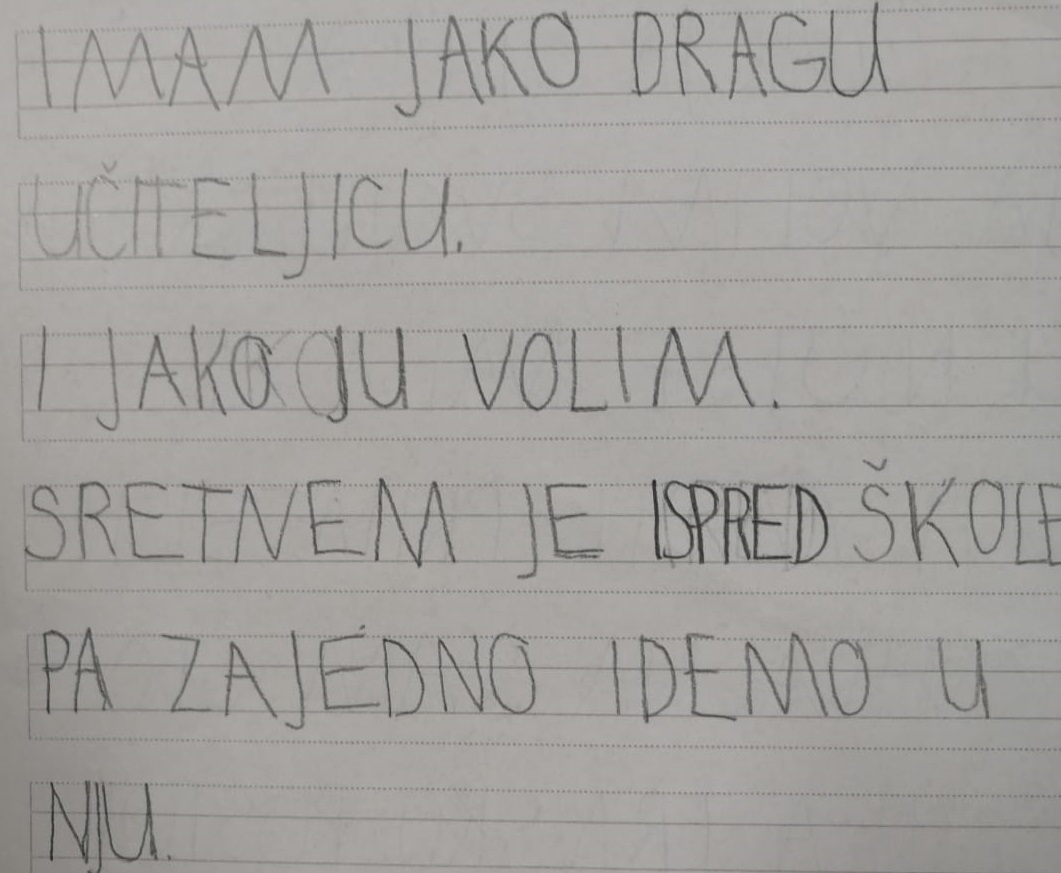 IMAM JAKO DRAGU
UČITELJICU.
I JAKO JU VOLIM.
SRETNEM JE ISPRED ŠKOLE
PA ZAJEDNO IDEMO U
NJU.